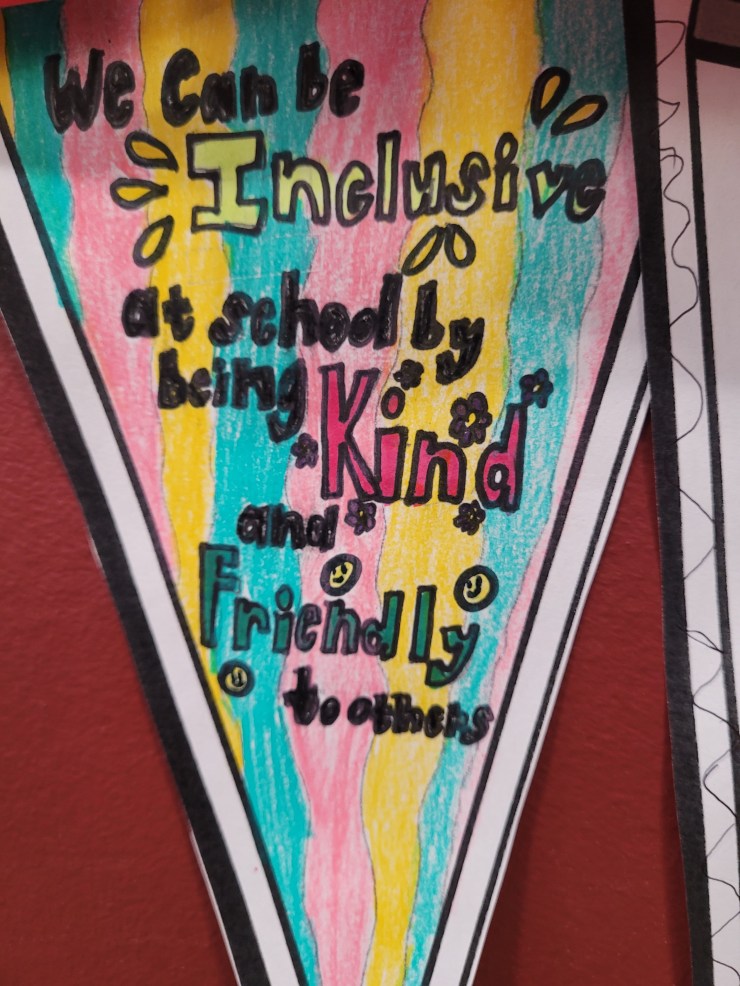 We Can be
Inclusive
at school by
being Kind
and
Friendly
to others